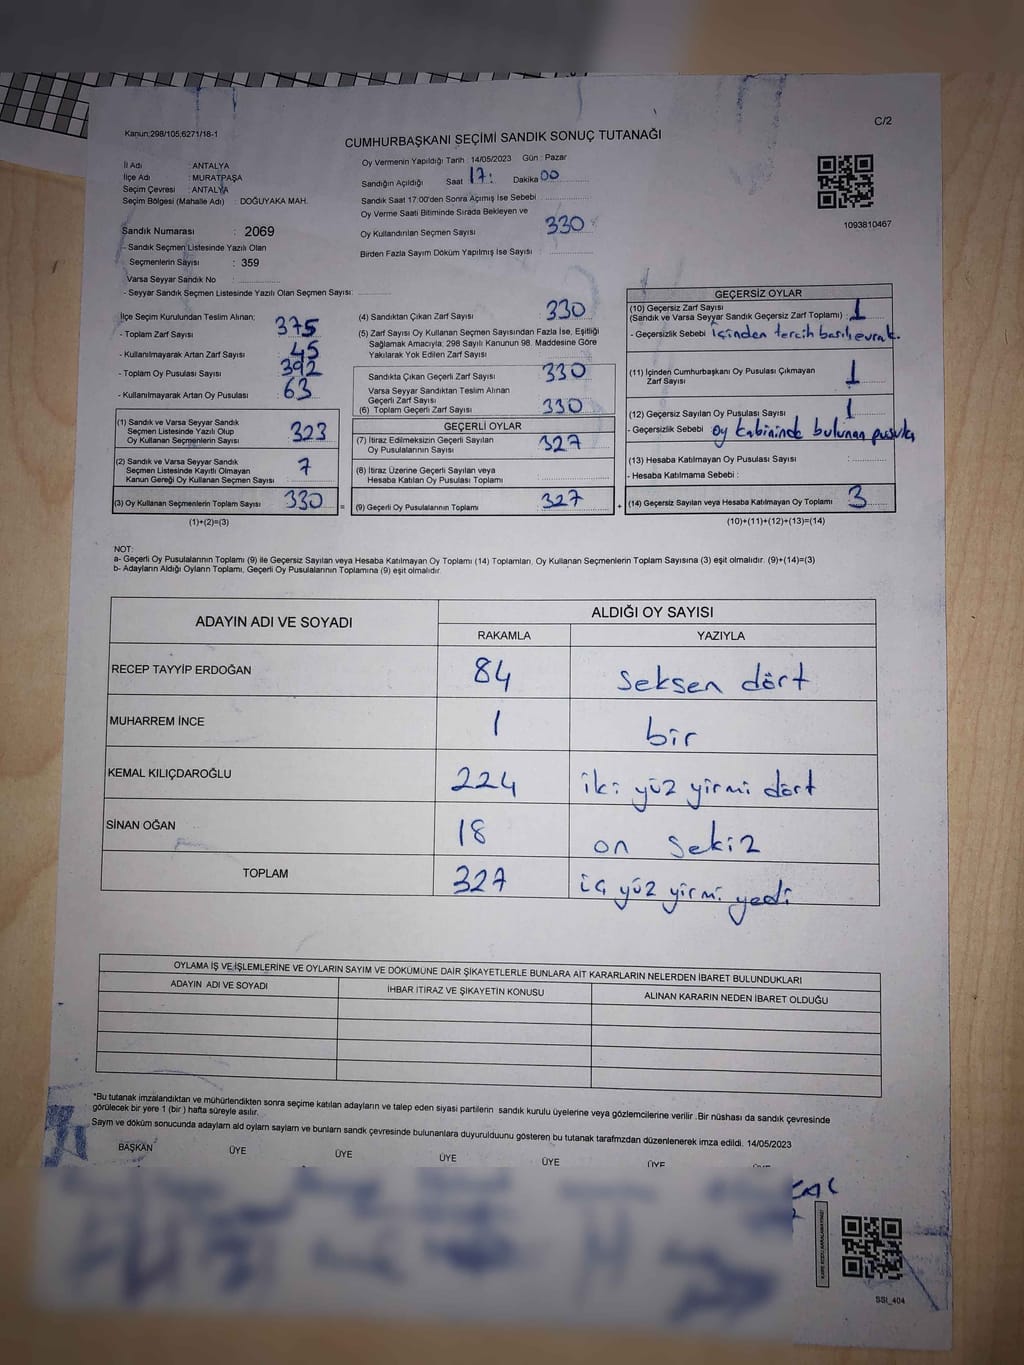 Kanun:298/105;6271/18-1
C/2
CUMHURBAŞKANI SEÇİMİ SANDIK SONUÇ TUTANAĞI
İl Adı : ANTALYA
İlçe Adı : MURATPAŞA
Seçim Çevresi : ANTALYA
Seçim Bölgesi (Mahalle Adı) : DOĞUYAKA MAH.
Sandık Numarası : 2069
- Sandık Seçmen Listesinde Yazılı Olan
Seçmenlerin Sayısı : 359
Varsa Seyyar Sandık No
- Seyyar Sandık Seçmen Listesinde Yazılı Olan Seçmen Sayısı:
Oy Vermenin Yapıldığı Tarih : 14/05/2023 Gün : Pazar
Sandığın Açıldığı Saat 17: Dakika 00
Sandık Saat 17:00'den Sonra Açımış İse Sebebi
Oy Verme Saati Bitiminde Sırada Bekleyen ve
Oy Kullandırılan Seçmen Sayısı : 330
Birden Fazla Sayım Döküm Yapılmış İse Sayısı :
1093810467
İlçe Seçim Kurulundan Teslim Alınan;
- Toplam Zarf Sayısı 375
- Kullanılmayarak Artan Zarf Sayısı 45
- Toplam Oy Pusulası Sayısı 392
- Kullanılmayarak Artan Oy Pusulası 63
(1) Sandık ve Varsa Seyyar Sandık
Seçmen Listesinde Yazılı Olup
Oy Kullanan Seçmenlerin Sayısı 323
(2) Sandık ve Varsa Seyyar Sandık
Seçmen Listesinde Kayıtlı Olmayan
Kanun Gereği Oy Kullanan Seçmen Sayısı 7
(3) Oy Kullanan Seçmenlerin Toplam Sayısı 330
(1)+(2)=(3)
=
(4) Sandıktan Çıkan Zarf Sayısı 330
(5) Zarf Sayısı Oy Kullanan Seçmen Sayısından Fazla İse, Eşitliği
Sağlamak Amacıyla; 298 Sayılı Kanunun 98. Maddesine Göre
Yakılarak Yok Edilen Zarf Sayısı
Sandıkta Çıkan Geçerli Zarf Sayısı 330
Varsa Seyyar Sandıktan Teslim Alınan
Geçerli Zarf Sayısı
(6) Toplam Geçerli Zarf Sayısı 330
GEÇERLİ OYLAR
(7) İtiraz Edilmeksizin Geçerli Sayılan
Oy Pusulalarının Sayısı 327
(8) İtiraz Üzerine Geçerli Sayılan veya
Hesaba Katılan Oy Pusulası Toplamı
(9) Geçerli Oy Pusulalarının Toplamı 327
+
GEÇERSİZ OYLAR
(10) Geçersiz Zarf Sayısı
(Sandık ve Varsa Seyyar Sandık Geçersiz Zarf Toplamı) : 1
- Geçersizlik Sebebi içinden tercih basılı evrak.
(11) İçinden Cumhurbaşkanı Oy Pusulası Çıkmayan
Zarf Sayısı 1
(12) Geçersiz Sayılan Oy Pusulası Sayısı 1
- Geçersizlik Sebebi oy kabininde bulunan pusula
(13) Hesaba Katılmayan Oy Pusulası Sayısı
- Hesaba Katılmama Sebebi :
(14) Geçersiz Sayılan veya Hesaba Katılmayan Oy Toplamı 3
(10)+(11)+(12)+(13)=(14)
NOT:
a- Geçerli Oy Pusulalarının Toplamı (9) ile Geçersiz Sayılan veya Hesaba Katılmayan Oy Toplamı (14) Toplamları, Oy Kullanan Seçmenlerin Toplam Sayısına (3) eşit olmalıdır. (9)+(14)=(3)
b- Adayların Aldığı Oyların Toplamı, Geçerli Oy Pusulalarının Toplamına (9) eşit olmalıdır.
ADAYIN ADI VE SOYADI ALDIĞI OY SAYISI
RAKAMLA YAZIYLA
RECEP TAYYİP ERDOĞAN 84 seksen dört
MUHARREM İNCE 1 bir
KEMAL KILIÇDAROĞLU 224 iki yüz yirmi dört
SİNAN OĞAN 18 on sekiz
TOPLAM 327 üç yüz yirmi yedi
OYLAMA İŞ VE İŞLEMLERİNE VE OYLARIN SAYIM VE DÖKÜMÜNE DAİR ŞİKAYETLERLE BUNLARA AİT KARARLARIN NELERDEN İBARET BULUNDUKLARI
ADAYIN ADI VE SOYADI İHBAR İTİRAZ VE ŞİKAYETİN KONUSU ALINAN KARARIN NEDEN İBARET OLDUĞU
*Bu tutanak imzalandıktan ve mühürlendikten sonra seçime katılan adayların ve talep eden siyasi partilerin sandık kurulu üyelerine veya gözlemcilerine verilir .Bir nüshası da sandık çevresinde
görülecek bir yere 1 (bir ) hafta süreyle asılır.
Sayım ve döküm sonucunda adayların ald oyların sayları ve bunların sandk çevresinde bulunanlara duyurulduunu gösteren bu tutanak tarafmzdan düzenlenerek imza edildi. 14/05/2023
BAŞKAN ÜYE ÜYE ÜYE ÜYE ÜYE
SSI_404